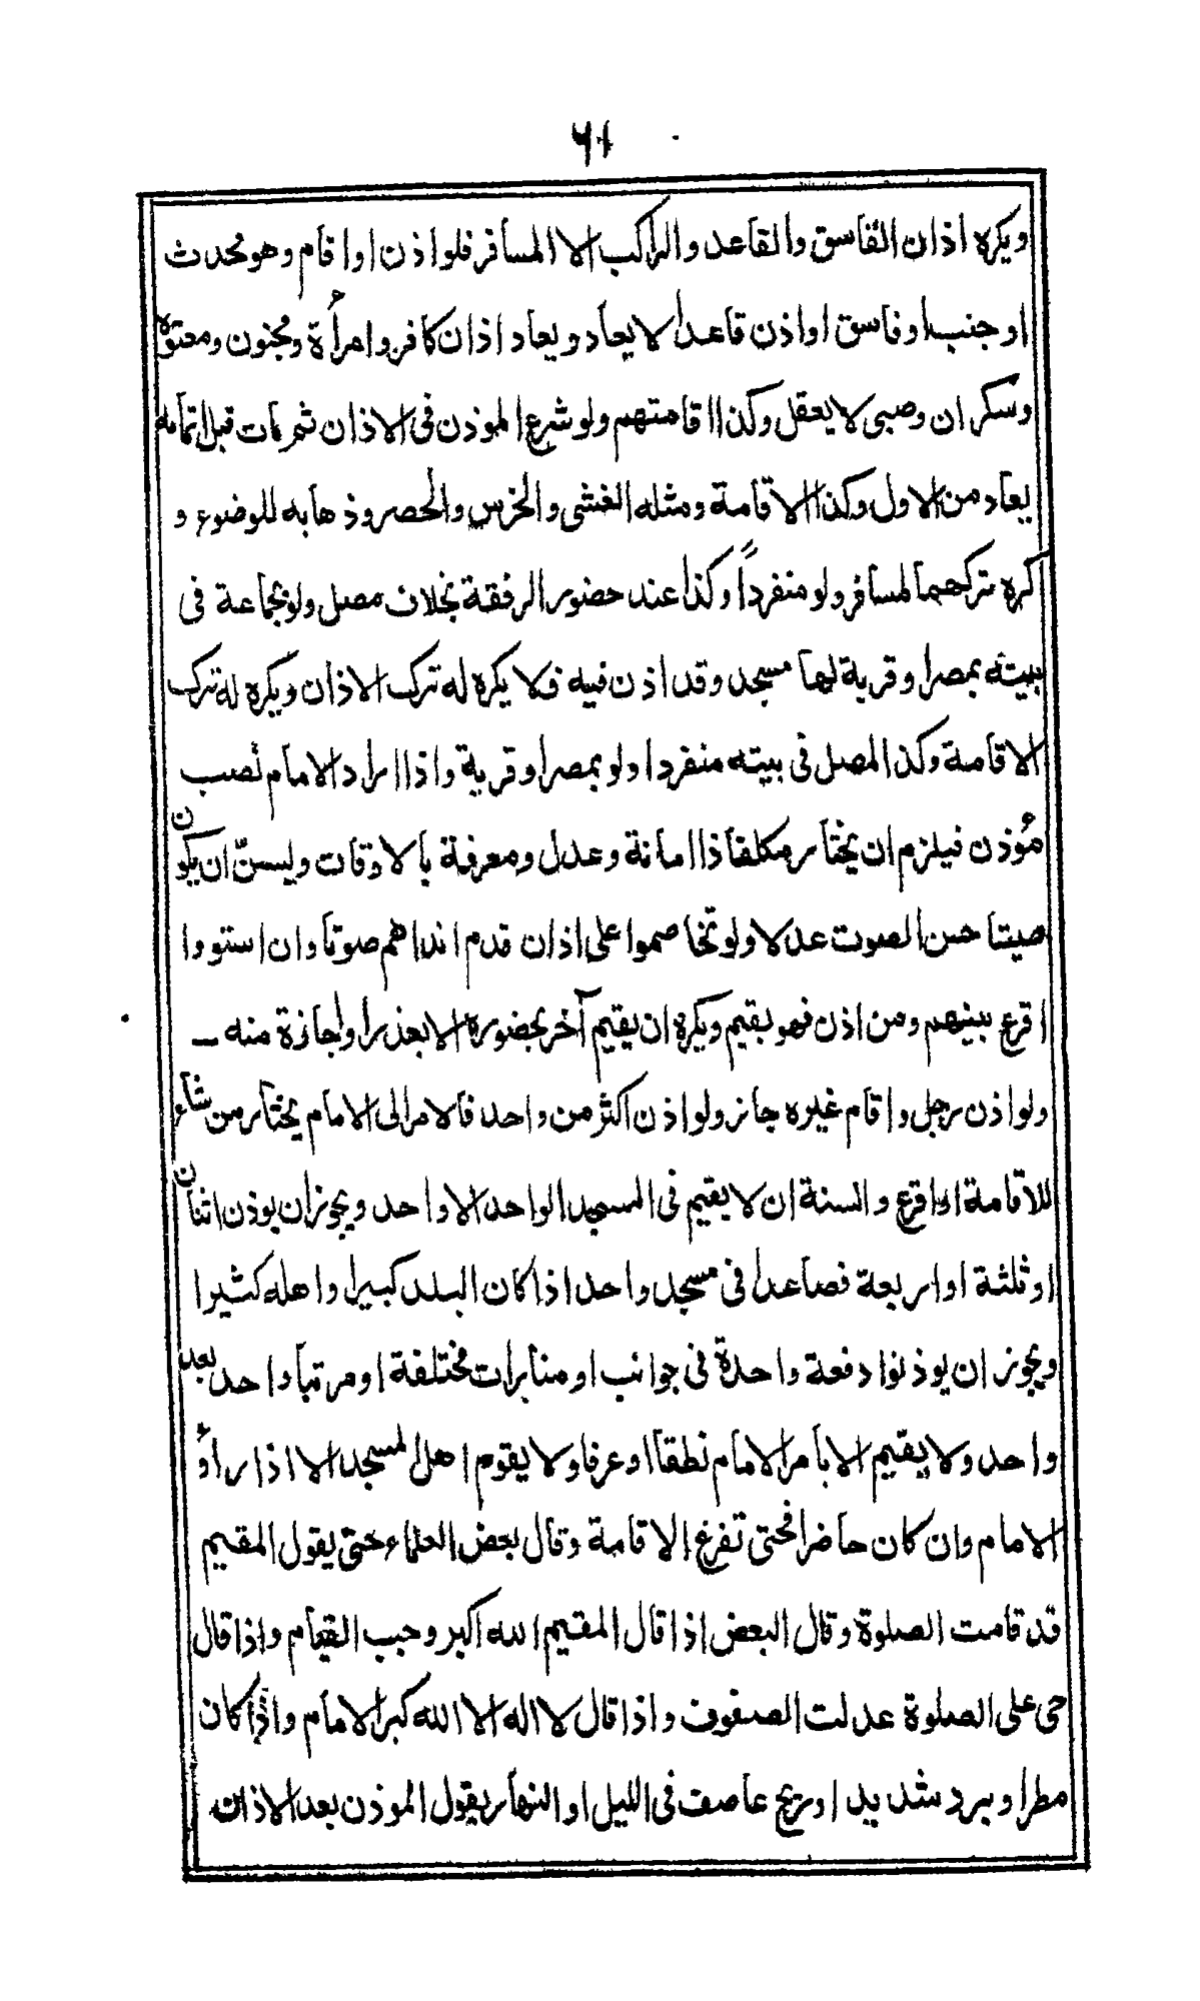 ٦١
ويكره اذان الفاسق والقاعد والراكب الا المسافر فلو اذن او اقام وهو محدث
او جنب او فاسق او اذن قاعدا لا يعاد ويعاد اذان كافر وامرأة ومجنون ومعتوه
وسكران وصبى لا يعقل وكذا اقامتهم ولو شرع الموذن فى الاذان ثم مات قبل اتمامه
يعاد من الاول وكذا الاقامة ومثله الغشى والخرس والحصر وذهابه للوضوء و
كره تركهما لمسافر ولو منفرداً وكذا عند حضور الرفقة بخلاف مصل ولو بجماعة فى
بيته بمصر او قرية لها مسجد وقد اذن فيه فلا يكره له ترك الاذان ويكره له ترك
الاقامة وكذا المصل فى بيته منفردا ولو بمصر او قرية واذا اراد الامام نصب
مؤذن فيلزم ان يختار مكلفا ذا امانة وعدل ومعرفة بالاوقات وليسنّ ان يكون
صيتا حسن الصوت عدلا ولو تخاصموا على اذان قدم انداهم صوتا وان استووا
اقرع بينهم ومن اذن فهو يقيم ويكره ان يقيم آخر بحضوره الا بعذر او اجازة منه ـ
ولو اذن رجل واقام غيره جاز ولو اذن اكثر من واحد فالامر الى الامام يختار من شاء
للاقامة او اقرع والسنة ان لا يقيم فى المسجد الواحد الا واحد ويجوز ان يوذن اثنان
او ثلثة او اربعة فصاعدا فى مسجد واحد اذا كان البلد كبيرا واهله كثيرا
ويجوز ان يوذنوا دفعة واحدة فى جوانب او منابرات مختلفة او مرتبا واحد بعد
واحد ولا يقيم الا بامر الامام نطقا او عرفا ولا يقوم اهل المسجد الا اذا رأو
الامام وان كان حاضرا فحتى تفرغ الاقامة وقال بعض العلماء حتى يقول المقيم
قد قامت الصلوة وقال البعض اذا قال المقيم الله اكبر وجب القيام واذا قال
حى على الصلوة عدلت الصفوف واذا قال لا اله الا الله كبر الامام واذا كان
مطر او برد شديد او ريح عاصف فى الليل او النهار يقول الموذن بعد الاذان